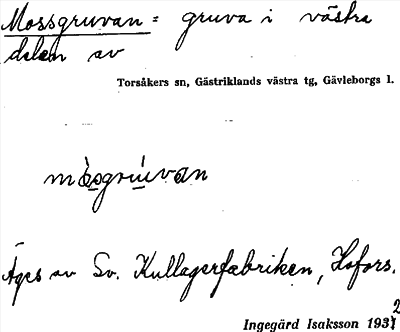 Mossgruvan = gruva i västra
delen av
Torsåkers sn, Gästriklands västra tg, Gävleborgs l.
mòsgrúvan
Äges av Sv. Kullagerfabriken, Hofors.
Ingegärd Isaksson 1932